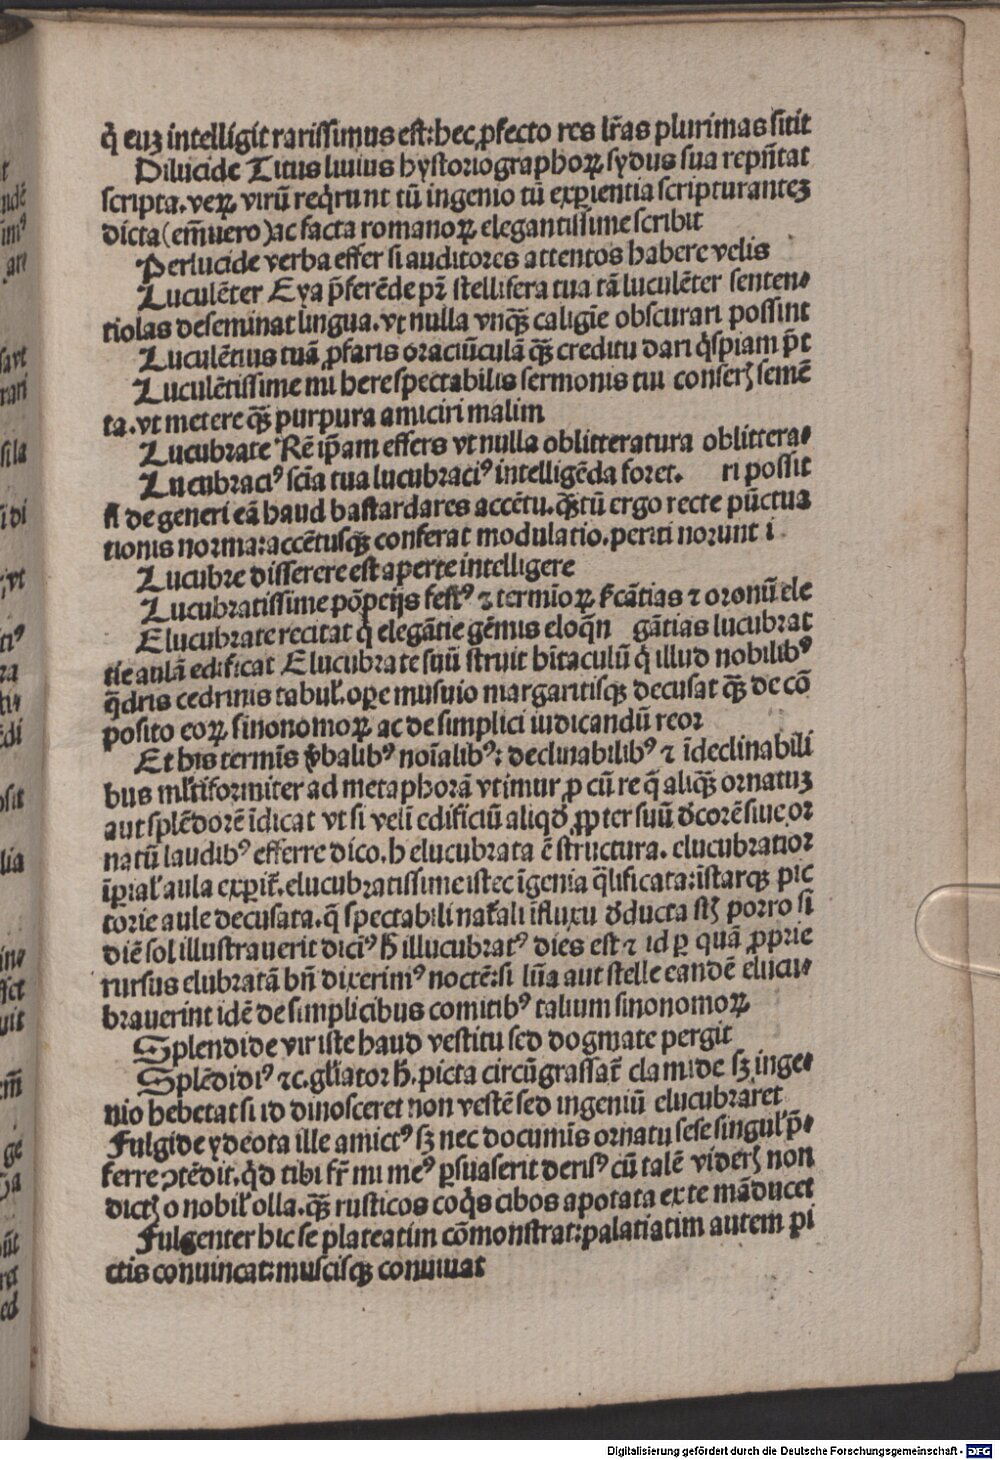 q̇ euꝫ intelligit rarissimus est: hec ꝓfecto res lr̄as plurimas sitit
Dilucide Titus liuius hystoriographoꝝ sydus sua repn̄tat
scripta. veꝝ virū req̇runt tū ingenio tū exꝑientia scripturantez
dicta (em̄uero) ac facta romanoꝝ elegantissime scribit
Perlucide verba effer si auditores attentos habere velis
Luculēter Eya p̄ferēde pr̄ stellifera tua tā luculēter senten⸗
tiolas deseminat lingua. vt nulla vnq̄ꝫ caligīe obscurari possint
Luculētius tuā ꝓfaris oraciūculā q̄ꝫ creditu dari q̇spiam p̄t
Luculētissime mi here spectabilis sermonis tui conserꝭ semē
ta. vt metere q̄ꝫ purpura amiciri malim
Lucubrate Rē ip̄am effers vt nulla oblitteratura oblittera⸗
Lucubraciꝰ scīa tua lucubraciꝰ intelligēda foret. ri possit
si de generi eā haud bastardares accētu. q̄ꝫtū ergo recte pūctua
tionis norma: accētusqꝫ conferat modulatio. periti norunt i
Lucubre disserere est aperte intelligere
Lucubratissime pōpeijs festꝰ ⁊ termīoꝝ fcātias ⁊ oronū ele
Elucubrate recitat q̇ elegātie gēmis eloq̄n gātias lucubrat
tie aulā edificat Elucubrate suū struit hītaculū q̇ illud nobilibꝰ
q̄dris cedrinis tabul̄. oꝑe musiuio margaritisqꝫ decusat q̄ꝫ de cō
posito eoꝝ sinonomoꝝ ac de simplici iudicandū reor
Et his termīs v̄balibꝰ noīalibꝰ: declinabilibꝰ ⁊ īdeclinabili
bus ml̄tiformiter ad metaphorā vtimur ꝓ cū re q̄ aliq̄ꝫ ornatuz
aut splēdorē īdicat vt si velī edificiū aliqd̄ ꝓpter suū d̄corē siue or
natū laudibꝰ efferre dico. h elucubrata ē structura. elucubratior
īꝑial̄ aula exꝑit̄. elucubratissime istec īgenia q̄lificata: īstarqꝫ pic
torie aule decusata. q̄ spectabili nat̄ali īfluxu d̄ducta sūt porro si
diē sol illustrauerit diciꝰ h̄ illucubratꝰ dies est ⁊ id ꝑ quā ꝓprie
rursus elubratā bn̄ dixerimꝰ noctē: si lūa aut stelle eandē elucu⸗
brauerint idē de simplicibus comitibꝰ talium sinonomoꝝ
Splendide vir iste haud vestitu sed dogmate pergit
Splēdidiꝰ ⁊c. gl̄iator h̄. picta circūgrassat̄ clamide sꝫ inge⸗
nio hebetat si id dinosceret non vestē sed ingeniū elucubraret
Fulgide ydeota ille amictꝰ sꝫ nec documīs ornatu sese singul̄ p̄⸗
ferre ꝯtēdit. q̇d tibi fr̄ mi meꝰ ꝑsuaserit derisꝰ cū talē viderꝭ non
dictꝭ o nobil̄ olla. q̄ꝫ rusticos coq̇s cibos apotata ex te māducet
Fulgenter hic se plateatim cōmonstrat: palatiatim autem pi
ctis conuincat: muscisqꝫ conuiuat
Digitalisierung gefördert durch die Deutsche Forschungsgemeinschaft - DFG